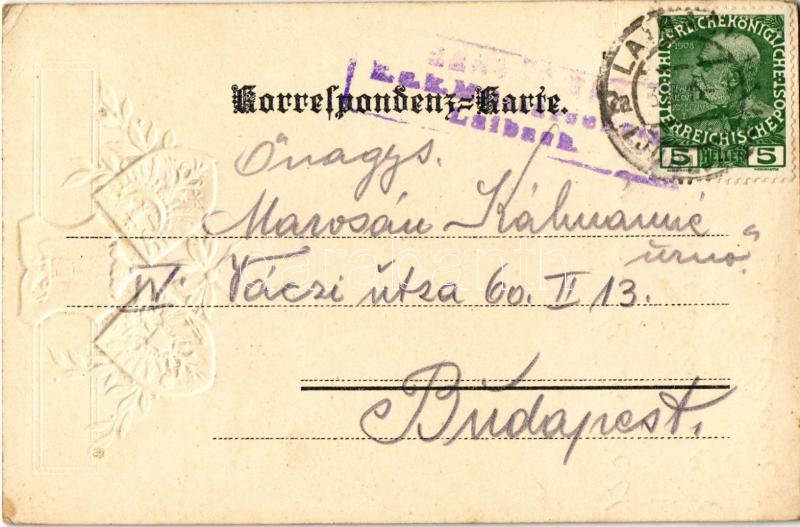 Korrespondenz=Karte.
K.u.K.
Laibach.
LAI
1908
KAISERLICHE KÖNIGLICHE
ÖSTERREICHISCHE POST
5 HELLER 5
Őnagys.
Marosán Kálmánné
úrnő
IV. Váczi útza 60. II 13.
Budapest.
darabanth